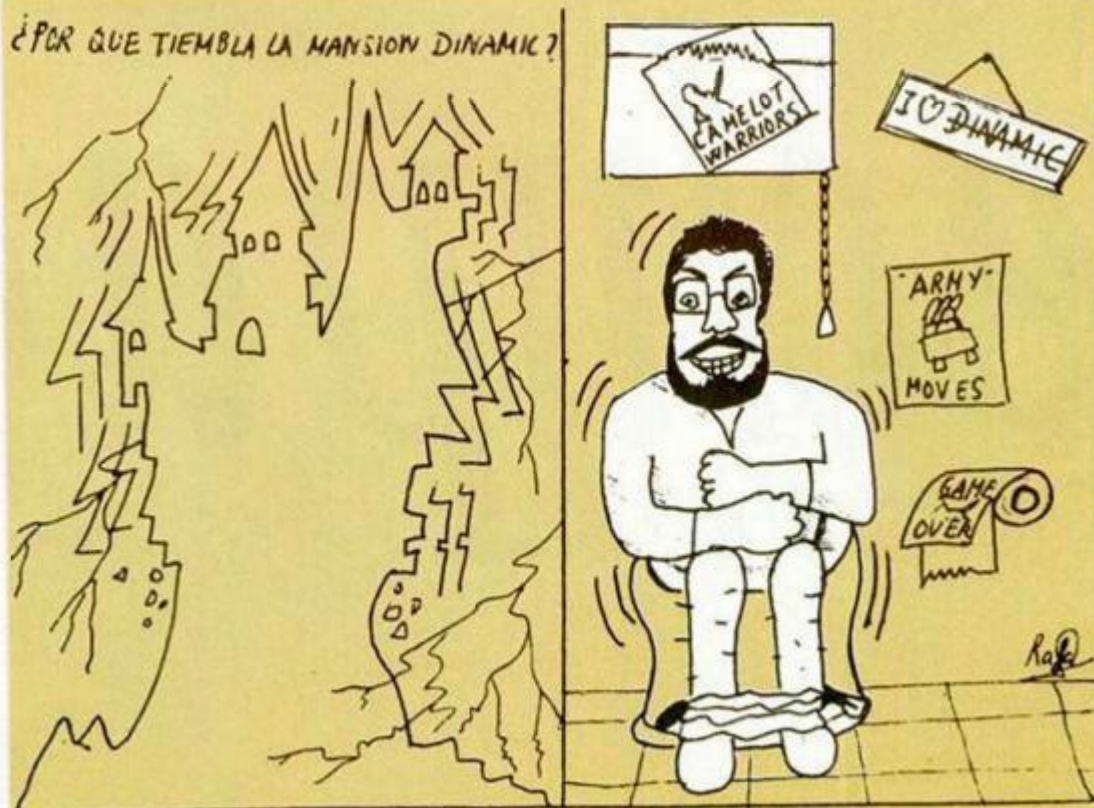 ¿POR QUE TIEMBLA LA MANSION DINAMIC?
CAMELOT
WARRIORS
I ♡ DINAMIC
"ARMY"
MOVES
GAME
OVER
Rafa